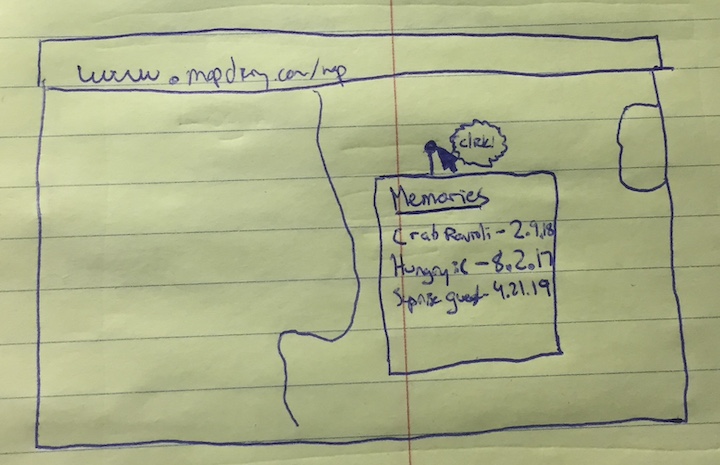 www.mapdiary.com/map
click!
Memories
Crab Ravioli - 2.9.18
Hungry - 8.2.17
Suprise guest - 4.21.19